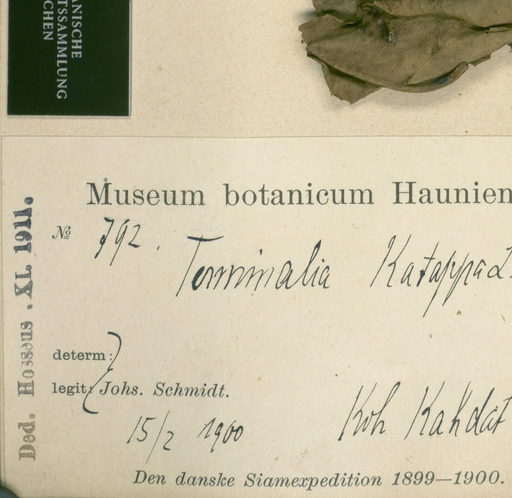 ANISCHE
TSSAMMLUNG
CHEN
Museum botanicum Haunien
№ 792.
Terminalia Katappa L.
determ:
legit: Johs. Schmidt.
15/2 1900
Koh Kahdat
Den danske Siamexpedition 1899—1900.
Ded. Hosseus. XI. 1911.